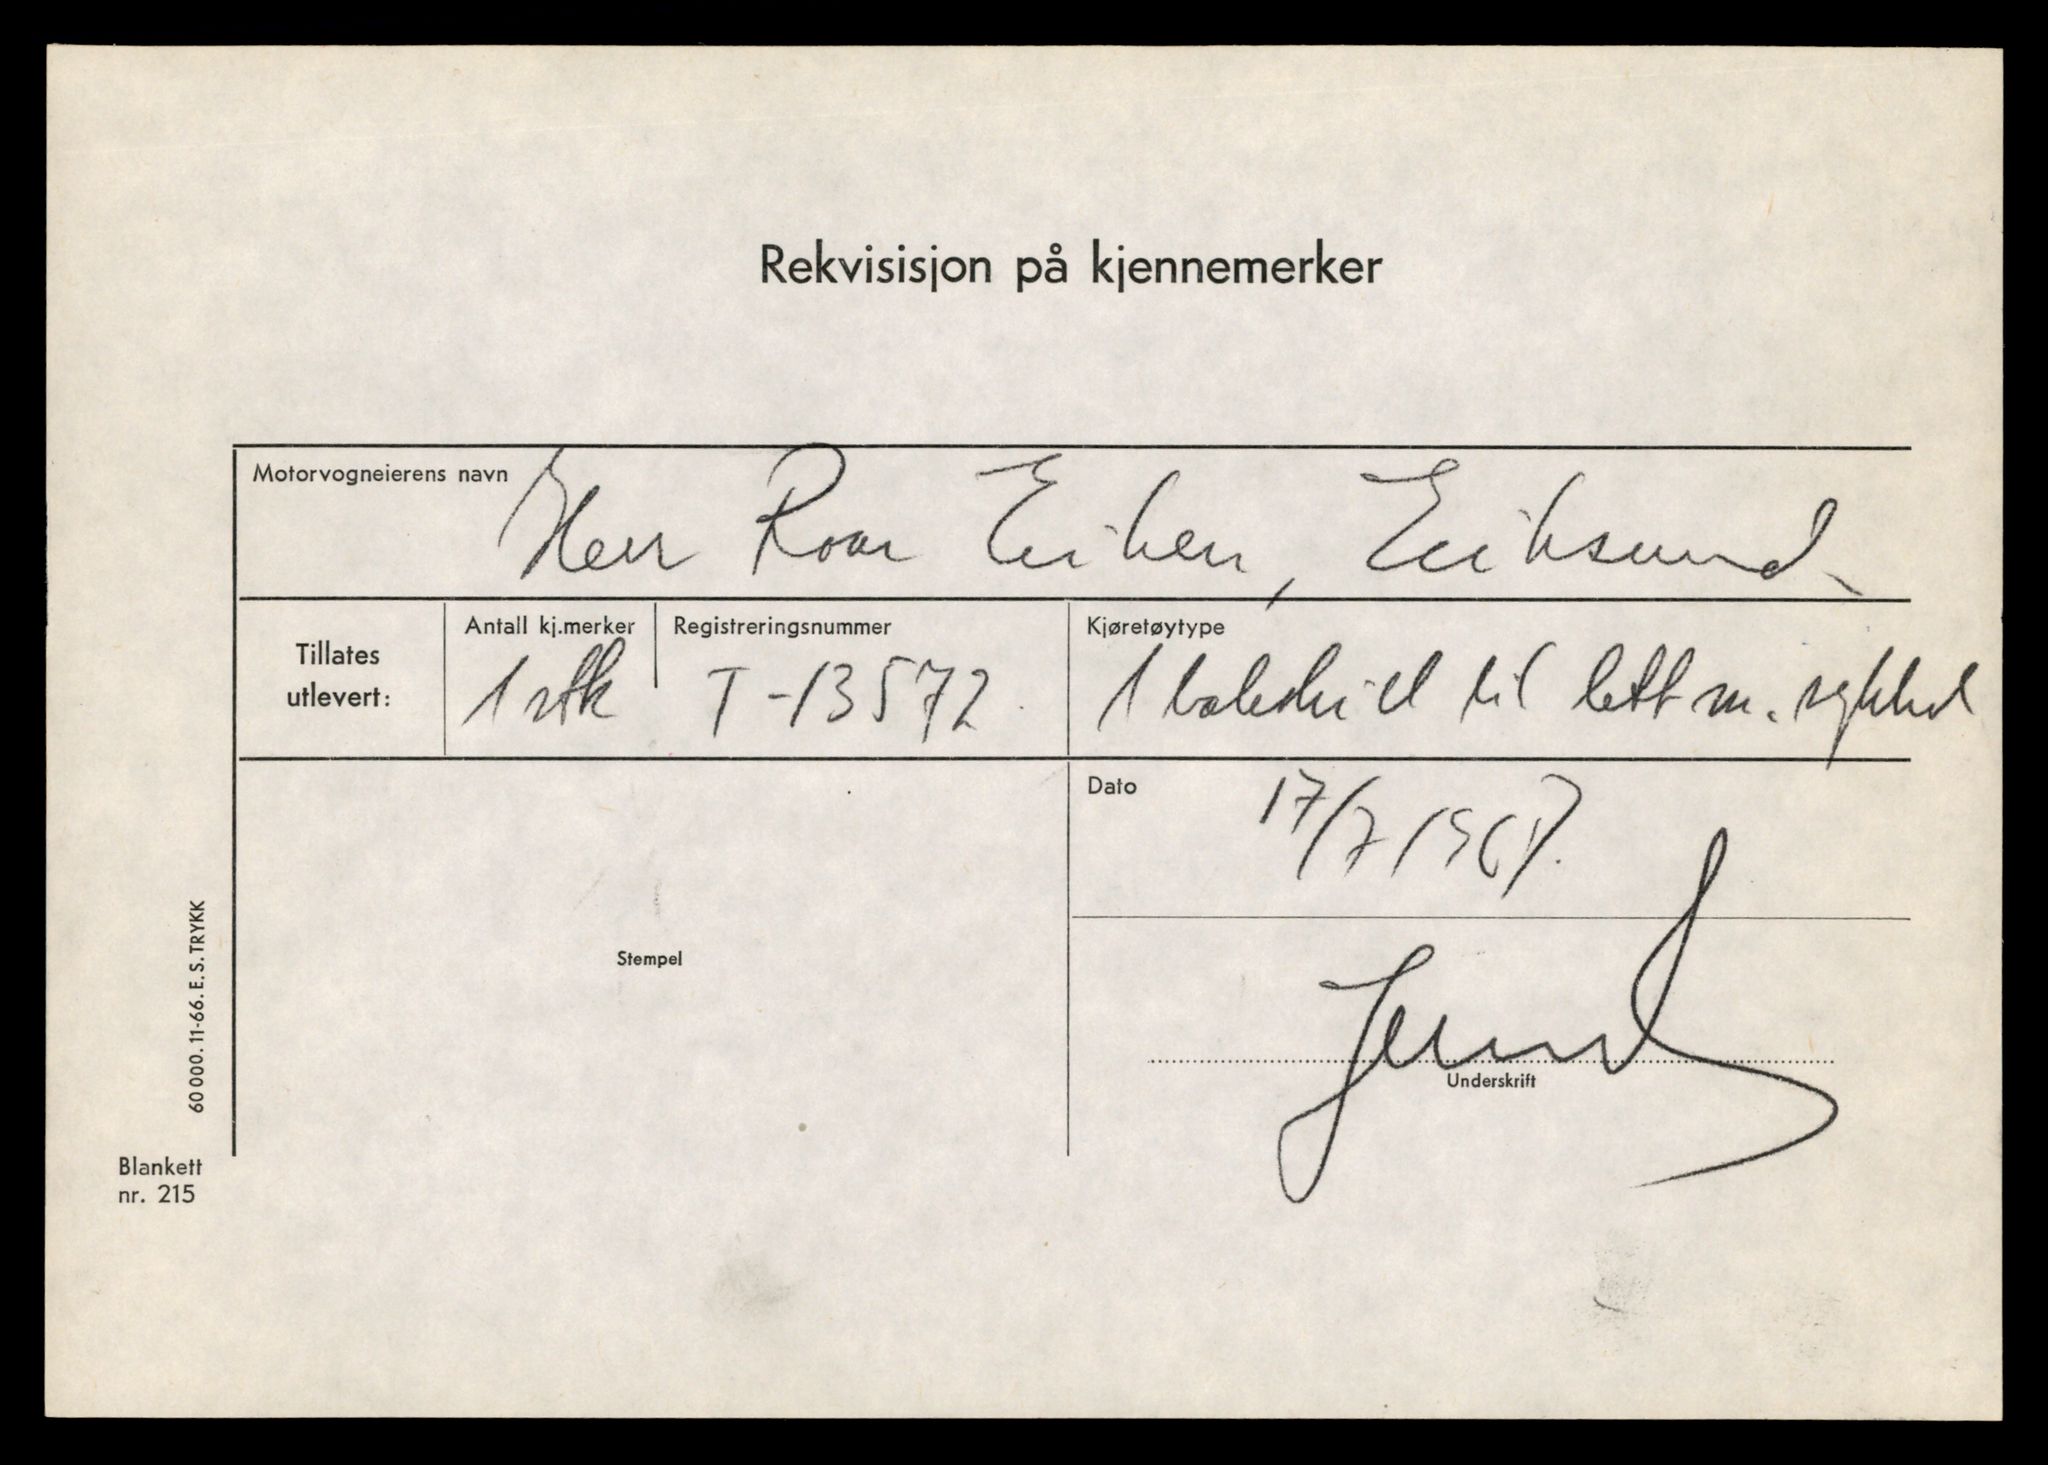 Rekvisisjon på kjennemerker
Motorvogneierens navn
Herr Roar Eiken, Eiksund
Tillates utlevert:
Antall kj.merker
1 stk
Registreringsnummer
T-13572.
Kjøretøytype
1 bakskilt til lett m. sykkel
Dato
17/7 1967.
Stempel
Underskrift
60 000. 11-66. E. S. TRYKK
Blankett
nr. 215